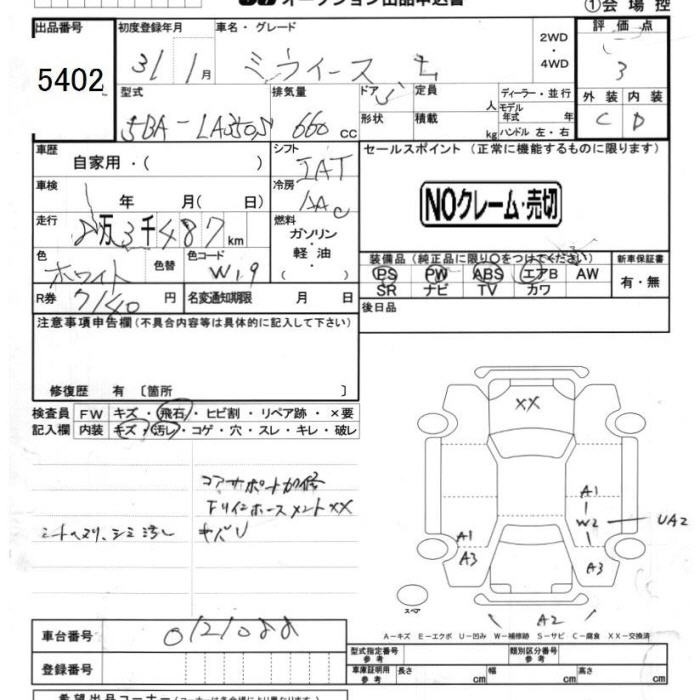 オークション出品申込書
①会場控
出品番号 初度登録年月 車名・グレード 2WD・4WD 評価点
5402 31 1月 ミライース L 3
型式 排気量 ドア 定員 人 ディーラー・並行 外装 内装
5BA-LA350S 660cc 5 形状 積載 kg モデル年式 年 ハンドル 左・右 C D
車歴 自家用・( ) シフト IAT セールスポイント (正常に機能するものに限ります)
車検 年 月( 日) 冷房 AAC
NOクレーム・売切
走行 8万3千487km 燃料 ガソリン・軽油・( )
色 ホワイト 色替 色コード W19
装備品 (純正品に限り○をつけてください) 新車保証書
PS PW ABS エアB AW 有・無
SR ナビ TV カワ
R券 7140円 名変通知期限 月 日
後日品
注意事項申告欄(不具合内容等は具体的に記入して下さい)
修復歴 有 〔箇所 〕
検査員記入欄 FW キズ・飛石・ヒビ割・リペア跡・×要
内装 キズ・汚レ・コゲ・穴・スレ・キレ・破レ
コアサポート加修
XX
シートヘタリ、シミ汚レ
A1
W2 UA2
A1
A3 A3
スペア
A2
A-キズ E-エクボ U-凹み W-補修跡 S-サビ C-腐食 XX-交換済
車台番号 0121088
登録番号
型式指定番号 参考 類別区分番号 参考
車庫証明用 参考 長さ cm 幅 cm 高さ cm
希望出品コーナー